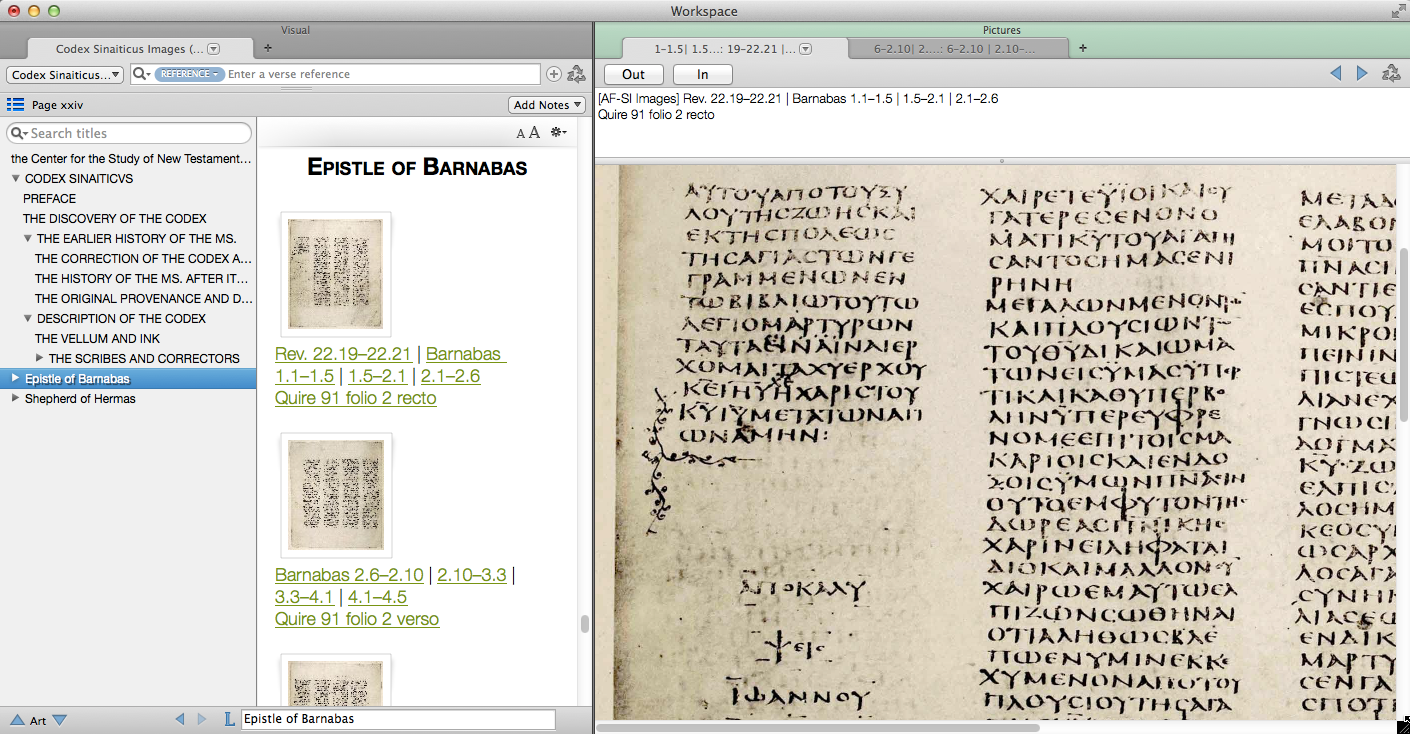 Workspace
Visual
Codex Sinaiticus Images (...
+
Codex Sinaiticus...
REFERENCE
Enter a verse reference
Page xxiv
Add Notes
Search titles
the Center for the Study of New Testament...
CODEX SINAITICVS
PREFACE
THE DISCOVERY OF THE CODEX
THE EARLIER HISTORY OF THE MS.
THE CORRECTION OF THE CODEX A...
THE HISTORY OF THE MS. AFTER IT...
THE ORIGINAL PROVENANCE AND D...
DESCRIPTION OF THE CODEX
THE VELLUM AND INK
THE SCRIBES AND CORRECTORS
Epistle of Barnabas
Shepherd of Hermas
Art
A A
EPISTLE OF BARNABAS
Rev. 22.19–22.21 | Barnabas
1.1–1.5 | 1.5–2.1 | 2.1–2.6
Quire 91 folio 2 recto
Barnabas 2.6–2.10 | 2.10–3.3 |
3.3–4.1 | 4.1–4.5
Quire 91 folio 2 verso
L
Epistle of Barnabas
Pictures
1-1.5| 1.5...: 19-22.21 |...
6-2.10| 2....: 6-2.10 | 2.10-...
+
Out
In
[AF-SI Images] Rev. 22.19–22.21 | Barnabas 1.1–1.5 | 1.5–2.1 | 2.1–2.6
Quire 91 folio 2 recto
ΑΥΤΟΥΑΠΟΤΟΥΞΥ
ΛΟΥΤΗϹΖΩΗϹΚΑΙ
ΕΚΤΗϹΠΟΛΕΩϹ
ΤΗϹΑΓΙΑϹΤΩΝΓΕ
ΓΡΑΜΜΕΝΩΝΕΝ
ΤΩΒΙΒΛΙΩΤΟΥΤΩ
ΛΕΓΙΟΜΑΡΤΥΡΩΝ
ΧΟΜΑΙΤΑΧΥΕΡΧΟΥ
ΩΝΑΜΗΝ:
ΑΠΟΚΑΛΥ
ΨΕΙϹ
ΪΩΑΝΝΟΥ
ΧΑΙΡΕΤΕΫΪΟΙΚΑΙΘΥ
ΓΑΤΕΡΕϹΕΝΟΝΟ
ΜΑΤΙΚΥΤΟΥΑΓΑΠΗ
ϹΑΝΤΟϹΗΜΑϹΕΝΙ
ΡΗΝΗ
ΜΕΓΑΛΩΝΜΕΝΟΝ
ΚΑΙΠΛΟΥϹΙΩΝΤ
ΤΟΥΘΥΔΙΚΑΙΩΜΑ
ΤΩΝΕΙϹΥΜΑϹΥΠΕΡ
ΤΙΚΑΙΚΑΘΥΠΕΡΒΟ
ΛΗΝΫΠΕΡΕΥΦΡΕ
ΝΟΜΕΕΠΙΤΟΙϹΜΑ
ΚΑΡΙΟΙϹΚΑΙΕΝΔΟ
ΞΟΙϹΥΜΩΝΠΝΑϹΙΝ
ΟΥΤΩΕΜΦΥΤΟΝΤΗ
ΔΩΡΕΑϹΠΝΙΚΗϹ
ΧΑΡΙΝΕΙΛΗΦΑΤΑΙ
ΔΙΟΚΑΙΜΑΛΛΟΝ
ΧΑΙΡΩΕΜΑΥΤΩΕΛ
ΠΙΖΩΝϹΩΘΗΝΑΙ
ΟΤΙΑΛΗΘΩϹΒΛΕ
ΠΩΕΝΥΜΙΝΕΚΚΕ
ΧΥΜΕΝΟΝΑΠΟΤΟΥ
ΠΛΟΥϹΙΟΥΤΗϹΑΓΑ
ΕΛΑΒΟΝ
ΜΟΙΤΟ
ΕϹΠΟΥ
ΜΙΚΡΟ
ΛΙΑΝΕΧ
ΓΝΩϹΙ
ΛΟΓΜΑ
ΚΥ·ΖΩ
ΕΛΠΙϹ
ΚΕΟϹΥ
ΩϹΑΡΧ
ΛΟϹΑΓΑ
ϹΥΝΗΗ
ΕΝΔΙΚ
ΜΑΡΤΥ
ϹΕΝΓΑ
ϹΠΟΤ